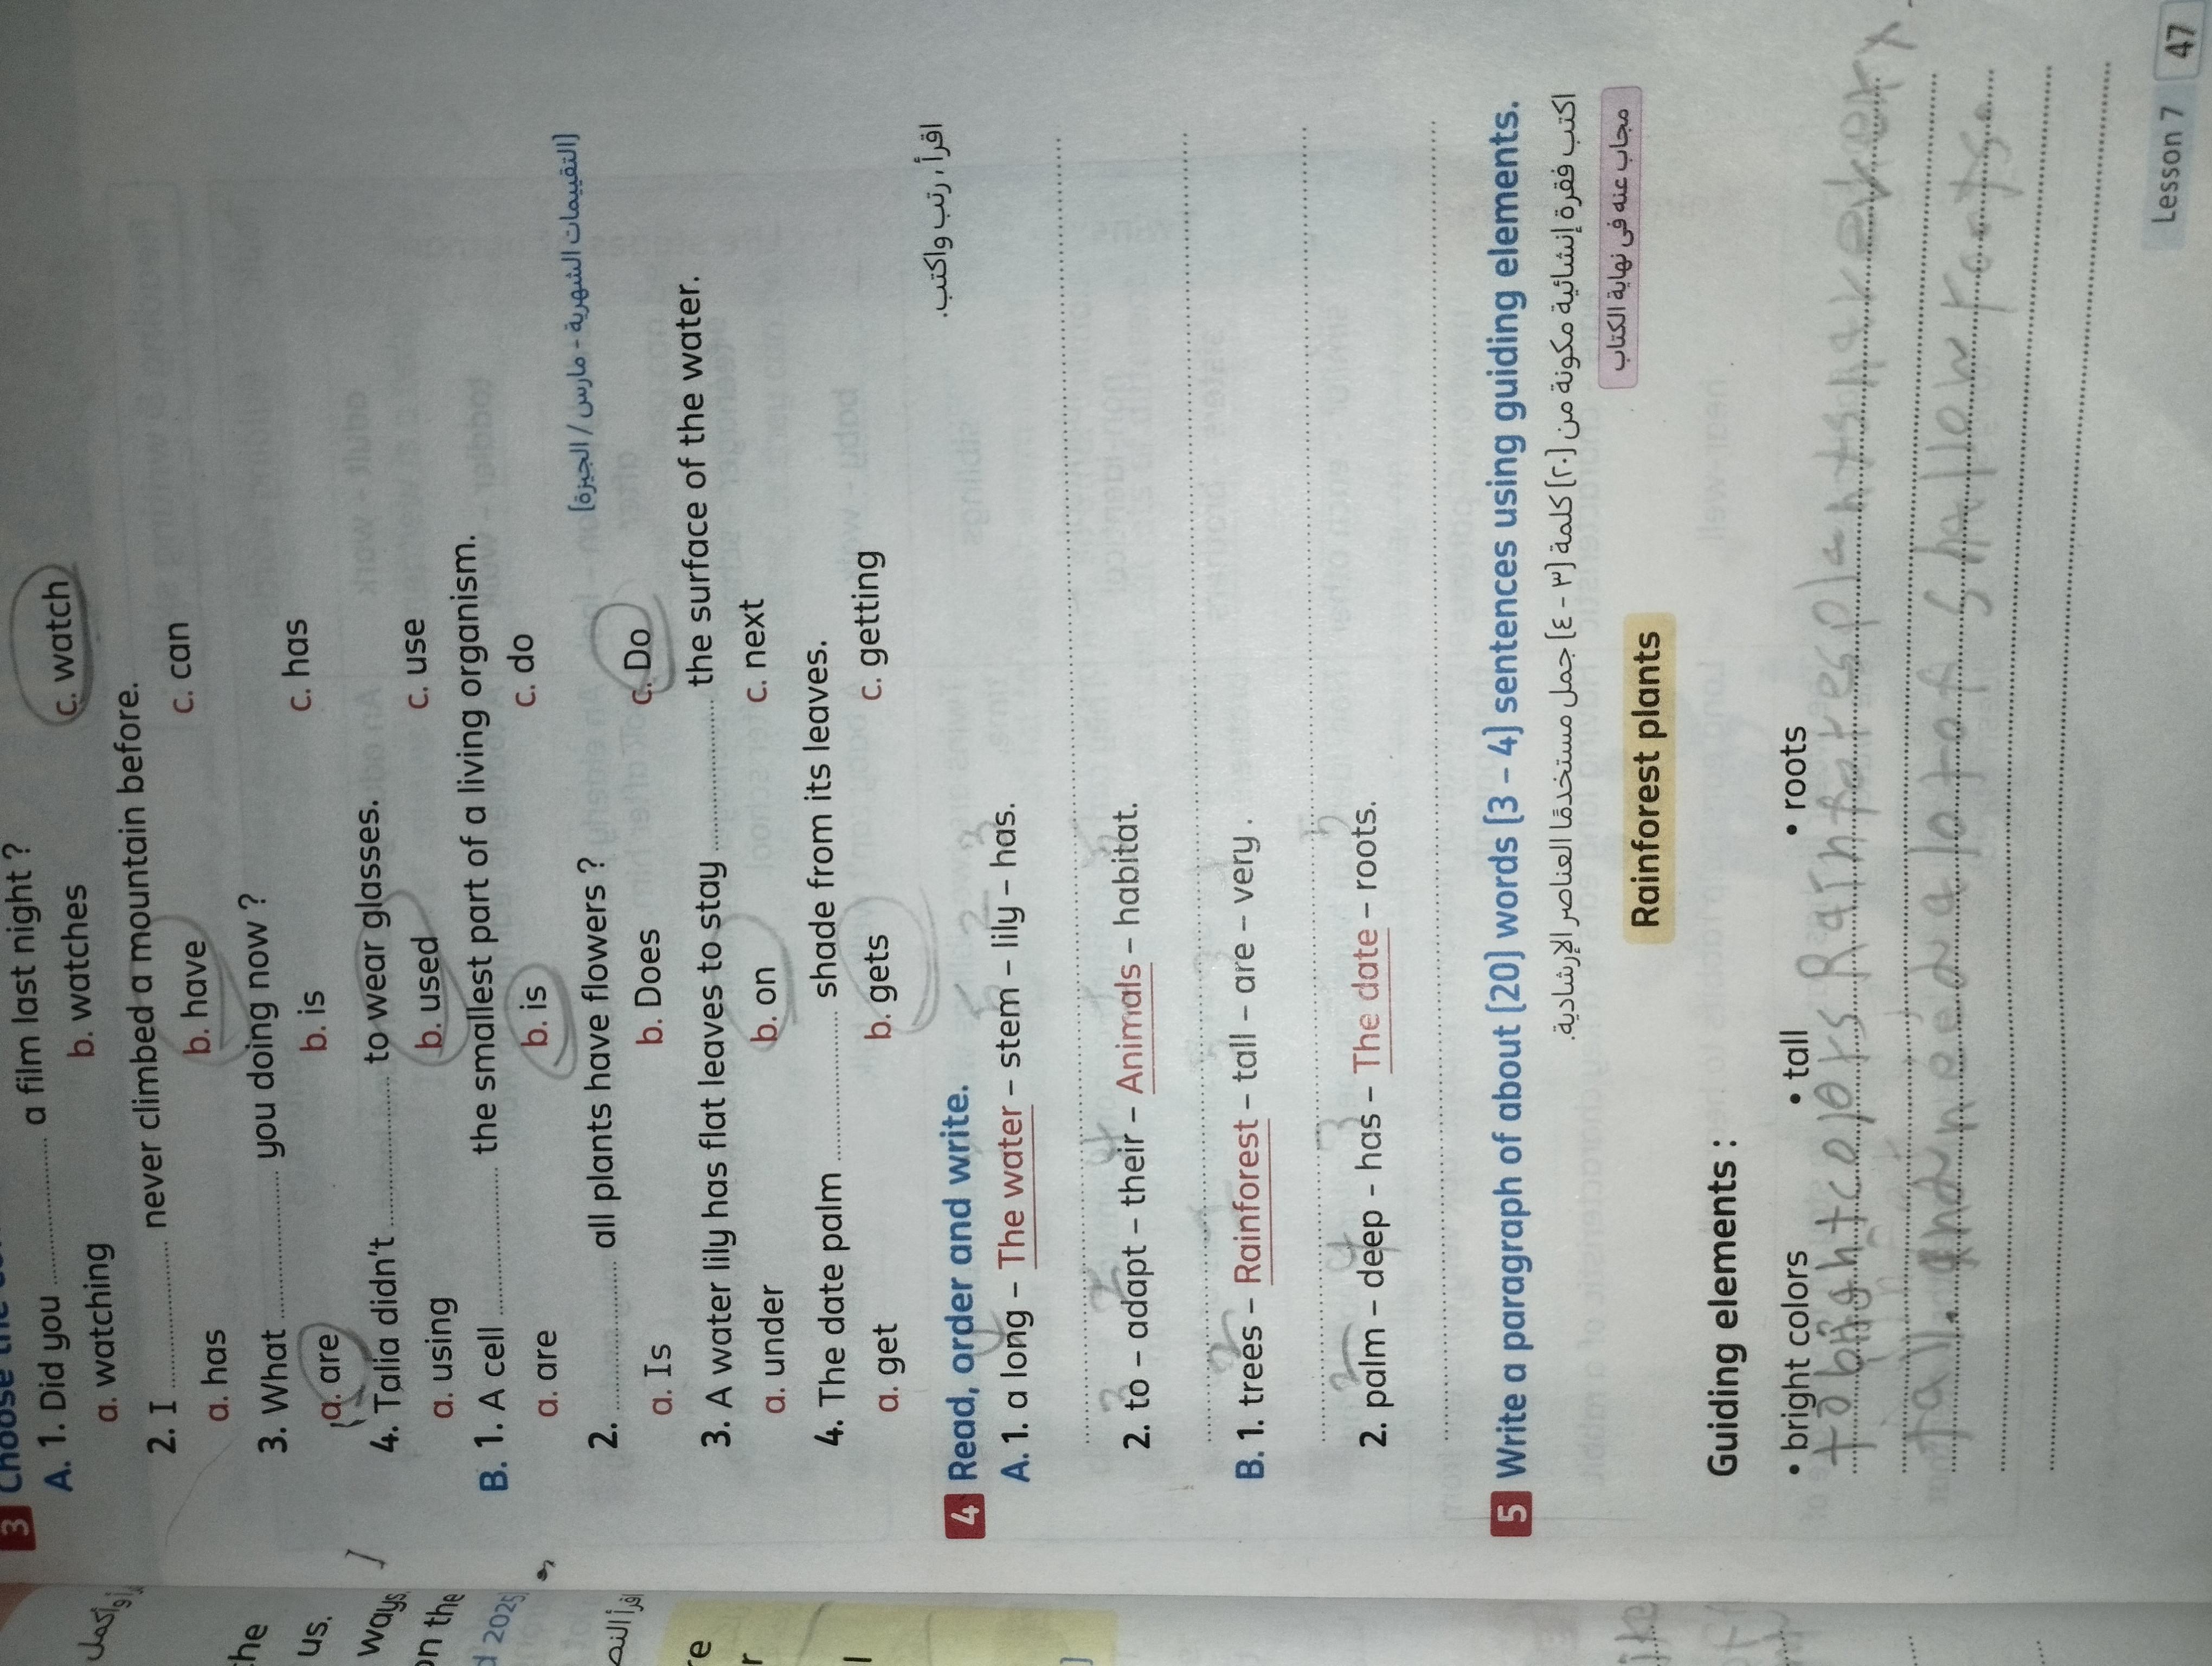 3 Choose the
A. 1. Did you .......... a film last night ?
a. watching b. watches c. watch
2. I .......... never climbed a mountain before.
a. has b. have c. can
3. What .......... you doing now ?
a. are b. is c. has
4. Talia didn't .......... to wear glasses.
a. using b. used c. use
B. 1. A cell .......... the smallest part of a living organism.
a. are b. is c. do
(التقييمات الشهرية - مارس / الجيزة)
2. .......... all plants have flowers ?
a. Is b. Does c. Do
3. A water lily has flat leaves to stay .......... the surface of the water.
a. under b. on c. next
4. The date palm .......... shade from its leaves.
a. get b. gets c. getting
4 Read, order and write. اقرأ، رتب واكتب.
A. 1. a long – The water – stem – lily – has.
2. to – adapt – their – Animals – habitat.
B. 1. trees – Rainforest – tall – are – very .
2. palm – deep - has – The date – roots.
5 Write a paragraph of about (20) words (3 - 4) sentences using guiding elements.
اكتب فقرة إنشائية مكونة من (٢٠) كلمة (٣ - ٤) جمل مستخدمًا العناصر الإرشادية.
مجاب عنه في نهاية الكتاب
Rainforest plants
Guiding elements :
• bright colors • tall • roots
colors Rainforest plants have very
tall. and need a lot of shallow roots.
Lesson 7 47
the
us.
ways
on the
2025